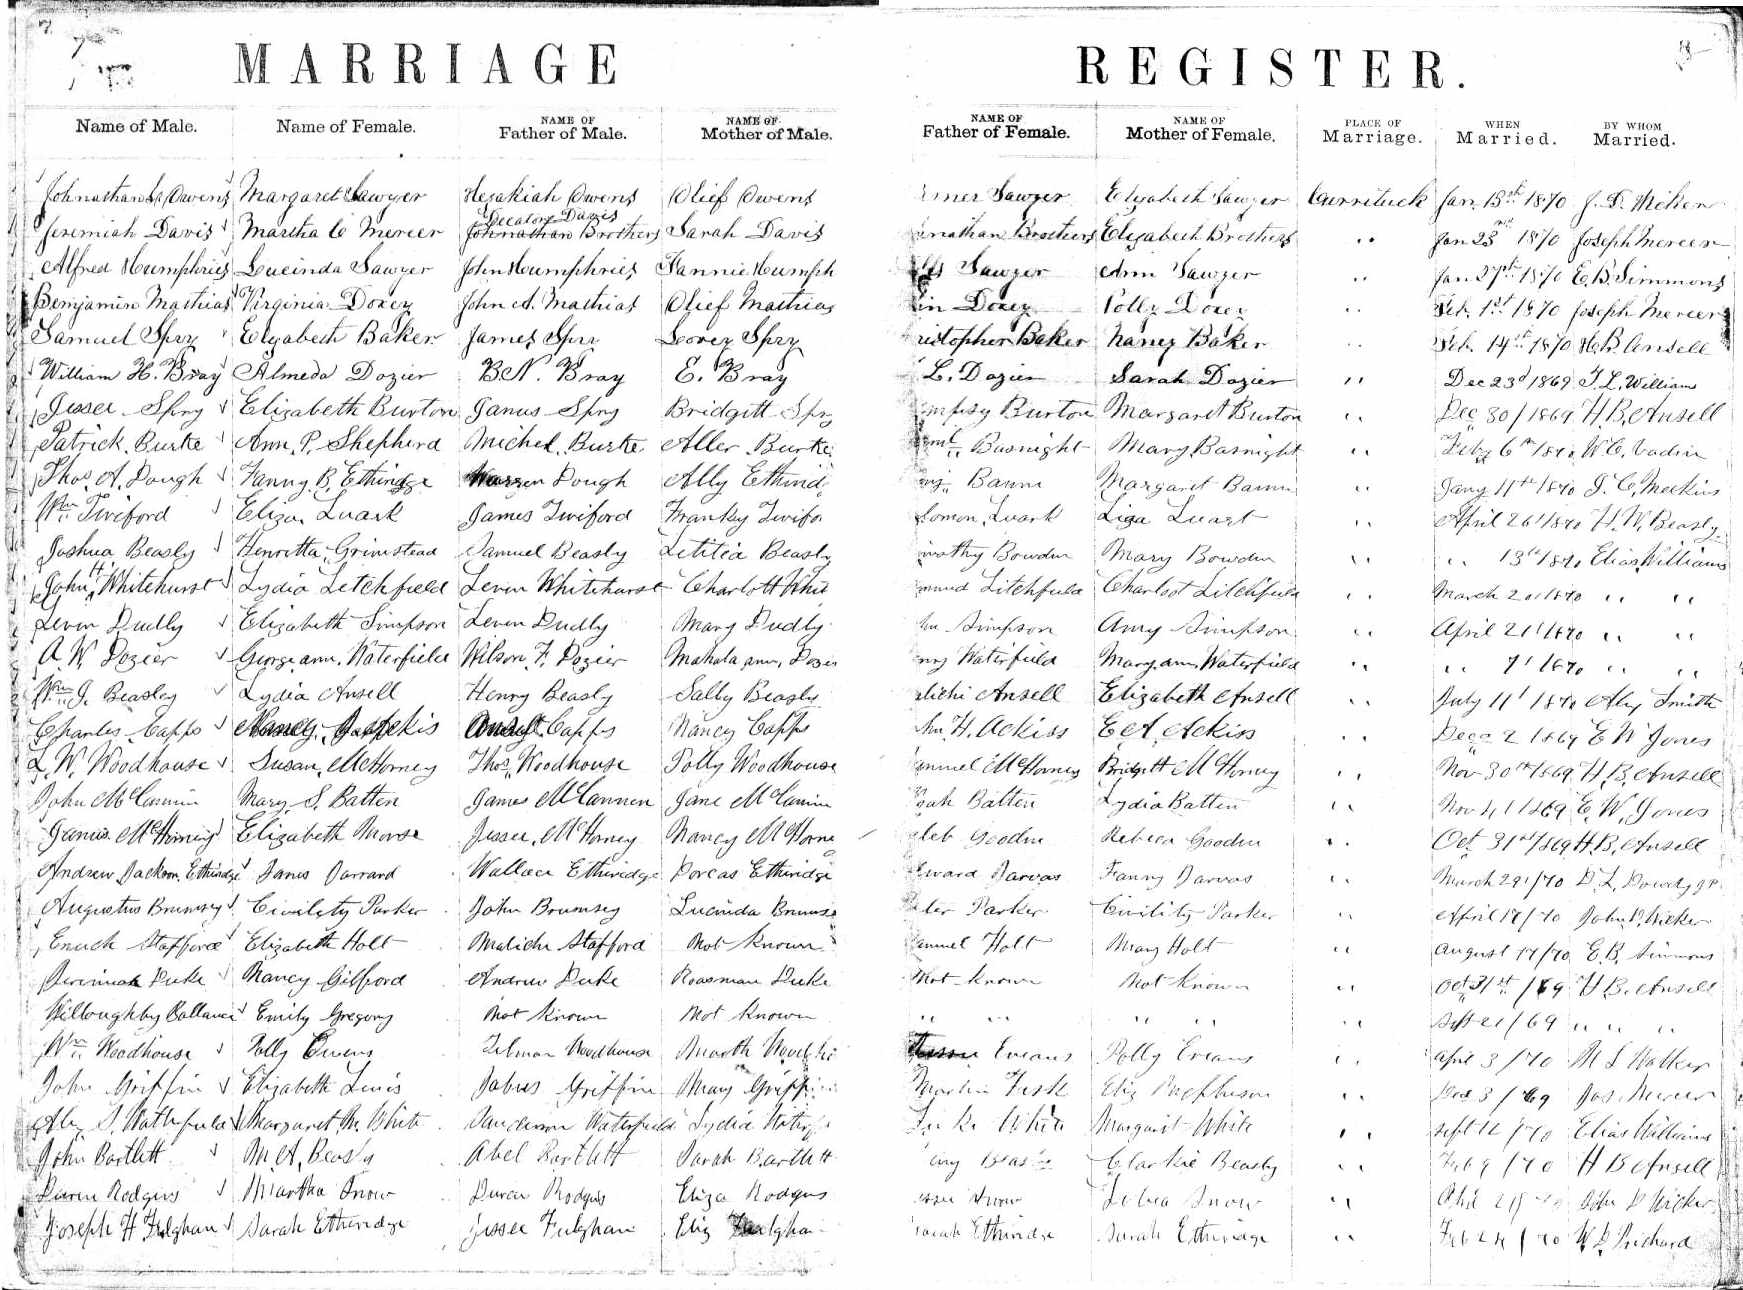 7
MARRIAGE REGISTER.
Name of Male. Name of Female. NAME OF Father of Male. NAME OF Mother of Male. NAME OF Father of Female. NAME OF Mother of Female. PLACE OF Marriage. WHEN Married. BY WHOM Married.
Johnathan Owens Margaret Sawyer Hezakiah Owens Olief Owens Sawyer Elizabeth Sawyer Currituck Jan. 13th 1870 J. D.
Decator Davis
Jeremiah Davis Martha C Mercer Johnathan Brothers Sarah Davis Brothers Elizabeth Brothers " Jan 23 1870 Joseph Mercer
Alfred Humphries Lucinda Sawyer John Humphries Fannie Humph Sawyer Ann Sawyer " Jan 27th 1870 E. B. Simmons
Benjamin Mathias Virginia Doxey John A. Mathias Olief Mathias Doxey Polly Doxey " Feb. 1st 1870 Joseph Mercer
Samuel Spry Elizabeth Baker James Spry Lovey Spry istopher Baker Nancy Baker " Feb. 14th 1870 H. B. Ansell
William H. Bray Almeda Dozier B N. Bray E. Bray L. Dozier Sarah Dozier " Dec 23d 1869 T. L. Williams
Jesse Spry Elizabeth Burton Janus Spry Bridgitt Spry mpsy Burton Margaret Burton " Dec 30/1869 H. B. Ansell
Patrick Burke Ann. P. Shepherd Michel Burke Aller Burke Basnight Mary Basnight " Feby 6th 1870 W. C.
Thos. A. Dough Fanny B. Ethridge Warren Dough Ally Ethrid Baum Margaret Baum " Jany 11th 1870 J. C. Meekins
Wm Twiford Eliza Luark James Twiford Franky Twifo lomon Luark Liza Luark " April 26/1870 H. W. Beasly
Joshua Beasly Henretta Grimstead Samuel Beasly Letitia Beasly mothy Bowden Mary Bowden " " 13th 1870 Elias Williams
John H. Whitehurst Lydia Letchfield Levin Whitehurst Charlott Whit Litchfield Charloot Litchfield " March 20/1870 " "
Levin Dudly Elizabeth Simpson Levin Dudly Mary Dudly Simpson Amy Simpson " April 21/1870 " "
A. W. Dozier Georgeann. Waterfield Wilson. F. Dozier Mahala ann. Dozier Waterfield Mary ann. Waterfield " " 7/1870 " "
Wm J. Beasley Lydia Ansell Henry Beasly Sally Beasly lichi Ansell Elizabeth Ansell " July 11/1870 Alex Smith
Charles Capps Nancy Capps Nancy Capps H. Ackiss E A. Ackiss " Dec 2 1869 E W Jones
L. W. Woodhouse Susan. McHorney Thos. Woodhouse Polly Woodhouse muel McHorney Bridgitt McHorney " Nov 30th/1869 H. B. Ansell
John McCannin Mary S. Batten James McCannen Jane McCannin Batten Lydia Batten " Nov 4/1869 E. W. Jones
Janus McHorney Elizabeth Morse Jesse. McHorney Nancy McHorne leb Gooden Rebeca Gooden " Oct 31st/1869 H. B. Ansell
Andrew Jackson. Etheridge Janis Jarrard Wallace Etheridge Dorcas Etheridge dward Jarvas Fanny Jarvas " March 29/70 D. L. Dowdy J P
Augustus Brumsey Civility Parker John Brumsey Lucinda Brumse ter Parker Civility Parker " April 17/70 John P. Wicker
Enoch Stafford Elizabeth Holt Malichi Stafford Not Known amuel Holt Mary Holt " August 17/70 E. B. Simmons
Jerimiah Duke Nancy Gilford Andrew Duke Roasman Duke Not Known Not Known " Oct 31st/69 H B. Ansell
Willoughby Ballance Emily Gregory Not Known Not Known " " " " " Sept 21/69 " " "
Wm Woodhouse Polly Owens Tilmon Woodhouse Marth Woodho Evans Polly Evans " April 3/70 M L Walker
John Griffin Elizabeth Lewis Jabus Griffin Mary Griffin Martin Fisk Eliz " Dec 3/69 Jas. Mercer
Alex S. Margaret M. White Sanderson Waterfield Lydia White Margaret White " Sept 12/70 Elias Williams
John Bartlett M A. Beasly Abel Bartlett Sarah Bartlett Beasly Clarkie Beasly " Feb 9/70 H B Ansell
Duren Rodgers Martha Snow Duren Rodgers Eliza Rodgers Snow Snow " April John P Wicker
Joseph H Fulghan Sarah Etheridge Jesse Fulghan Eliz Fulghan Etheridge Sarah Etheridge " Feb 24/70 W. D. Prichard